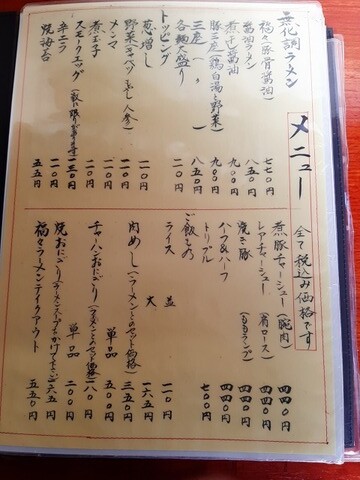 メニュー
全て税込み価格です
無化調ラーメン
福々豚骨醤油 七七〇円
醤油ラーメン 八五〇円
煮干し醤油 九〇〇円
豚三座(鶏白湯と野菜) 九〇〇円
三座 八五〇円
各麺大盛り 一一〇円
トッピング
葱増し 一一〇円
野菜(キャベツ・もやし・人参) 一一〇円
メンマ 一一〇円
煮玉子 一一〇円
スモークエッグ 一三〇円
辛ニラ 一一〇円
焼海苔 五五円
煮豚チャーシュー(腕肉) 四四〇円
レアチャーシュー(肩ロース) 四四〇円
焼き豚(ももランプ) 四四〇円
ハーフ&ハーフ 四四〇円
トリプル 七〇〇円
ご飯もの
ライス 並 一一〇円
大 一六五円
肉めし(ラーメンとのセット価格) 三五〇円
単品 五〇〇円
チャーハンおにぎり(ラーメンとのセット価格) 一八〇円
単品 二〇〇円
焼おにぎり(ラーメンスープをかけて) 一六五円
福々ラーメンテイクアウト 五五〇円